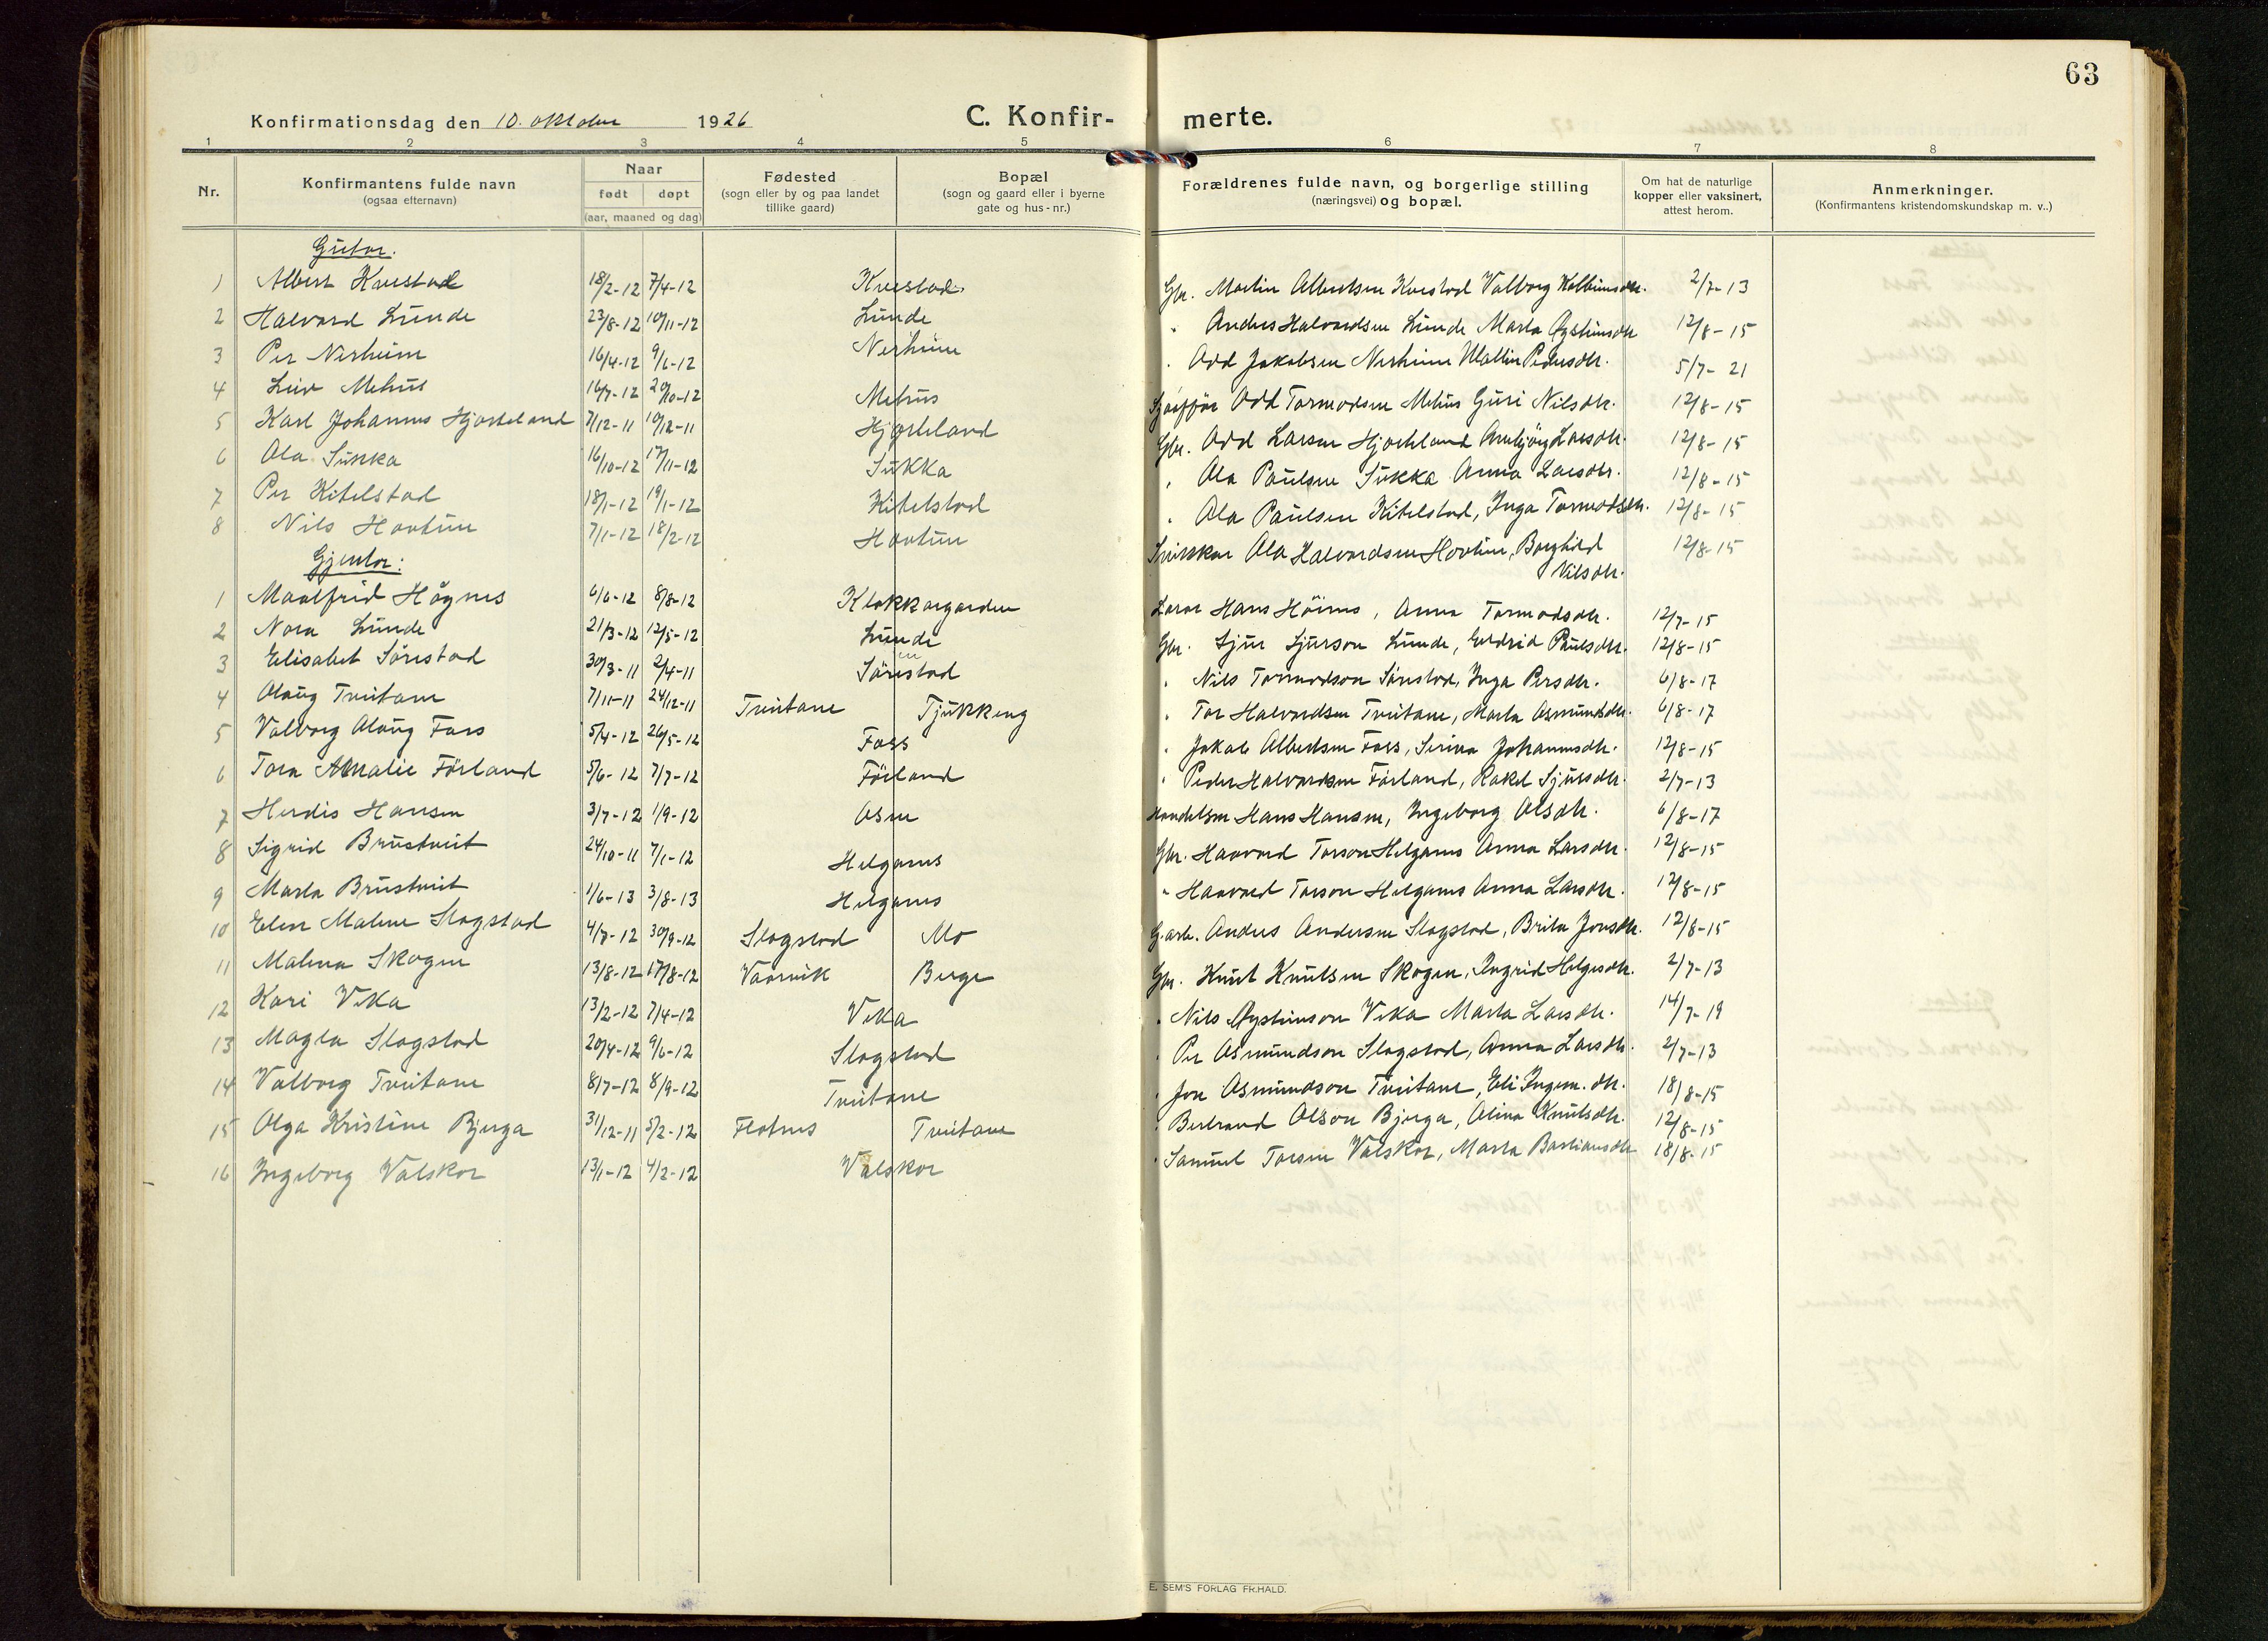 63
Konfirmationsdag den 10. oktober 1926
C. Konfir- merte.
1 2 3 4 5 6 7 8
Nr.
Konfirmantens fulde navn
(ogsaa efternavn)
Naar
født døpt
(aar, maaned og dag)
Fødested
(sogn eller by og paa landet
tillike gaard)
Bopæl
(sogn og gaard eller i byerne
gate og hus-nr.)
Forældrenes fulde navn, og borgerlige stilling
(næringsvei) og bopæl.
Om hat de naturlige
kopper eller vaksinert,
attest herom.
Anmerkninger.
(Konfirmantens kristendomskundskap m. v..)
Gutar.
1 Albert Kvestad 18/2-12 7/4-12 Kvestad Gbr. Martin Albertsen Kvestad Valborg 2/7-13
2 Halvard Lunde 23/8-12 10/11-12 Lunde " Anders Halvardsen Lunde Marta Øysteinsdtr 12/8-15
3 Per Nerheim 16/4-12 9/6-12 Nerheim " Odd Jakobsen Nerheim Mallin Pedersdtr. 5/7-21
4 Leiv Mehus 16/7-12 20/10-12 Mehus Odd Tormodsen Mehus Guri Nilsdtr. 12/8-15
5 Karl Johannes Hjorteland 7/12-11 10/12-11 Hjorteland Gbr. Odd Larsen Hjorteland Ambjørg Larsdtr. 12/8-15
6 Ola Sukka 16/10-12 17/11-12 Sukka " Ola Paulsen Sukka Anna Larsdtr. 12/8-15
7 Per Kitelstad 18/1-12 19/1-12 Kitelstad " Ola Paulsen Kitelstad, Inga Tormodsdtr. 12/8-15
8 Nils Hovtun 7/1-12 18/2-12 Hovtun Snikkar Ola Halvardsen Hovtun, Borghild 12/8-15
Nilsdtr.
Gjentor:
1 Maalfrid Høgnes 6/6-12 8/8-12 Klokkargarden Lærar Hans Höines, Anna Tormodsdtr. 12/7-15
2 Nora Lunde 21/3-12 12/5-12 Lunde Gbr. Sjur Sjurson Lunde, Eldrid Paulsdtr. 12/8-15
3 Elisabet Sörestad 30/3-11 2/4-11 Sörestad " Nils Tormodson Sörestad, Inga Persdtr. 6/8-17
4 Olaug Tveitane 7/11-11 24/12-11 Tveitane Tjukkeng " Tor Halvardsen Tveitane, Marta Asmundsdtr. 6/8-17
5 Valborg Olaug Foss 5/4-12 26/5-12 Foss " Jakob Albertsen Foss, Serina Johannesdtr. 12/8-15
6 Tora Amalie Förland 5/6-12 7/7-12 Förland " Peder Halvardsen Förland, Rakel Sjursdtr. 2/7-13
7 Herdis Hansen 3/7-12 1/9-12 Osen Handelsm Hans Hansen, Ingeborg Olsdtr. 6/8-17
8 Sigrid Brustveit 24/10-11 7/1-12 Helganes Gbr. Haavard Torson Helganes Anna Larsdtr. 12/8-15
9 Marta Brustveit 1/6-13 3/8-13 Helganes " Haavard Torson Helganes Anna Larsdtr. 12/8-15
10 Elen Malene Slagstad 4/7-12 30/9-12 Slagstad Mo G.arb. Anders Andersen Slagstad, Brita Jonsdtr. 12/8-15
11 Malena Skogen 13/8-12 17/8-12 Vaarvik Berge Gbr. Knut Knutsen Skogen, Ingrid Helgesdtr. 2/7-13
12 Kari Vika 13/2-12 7/4-12 Vika " Nils Øysteinson Vika Marta Larsdtr. 14/7-19
13 Magla Slagstad 20/4-12 9/6-12 Slagstad " Per Asmundson Slagstad, Anna Larsdtr. 2/7-13
14 Valborg Tveitane 8/7-12 8/9-12 Tveitane " Jon Asmundson Tveitane, Eli Ingem. dtr. 18/8-15
15 Olga Kristine Bjerga 31/12-11 5/2-12 Flotnes Tveitane " Bertrand Olson Bjerga, Olina Knutsdtr. 12/8-15
16 Ingeborg Valskor 13/1-12 4/2-12 Valskor " Samuel Torsen Valskor, Marta Bastiansdtr 18/8-15
E. SEM'S FORLAG FR.HALD.